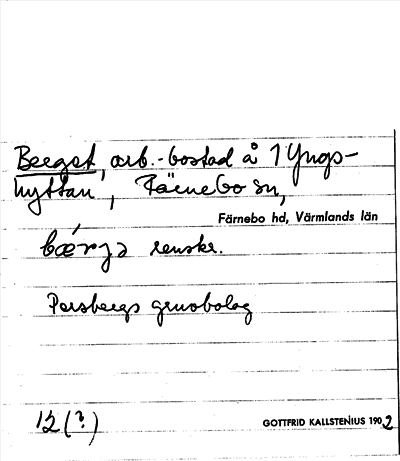 Berget, arb.-bostad å 1 Yngs-
hyttan, Färnebo sn,
Färnebo hd, Värmlands län
bærjə renskr.
Persbergs gruvbolag
12 (?)
GOTTFRID KALLSTENIUS 1902